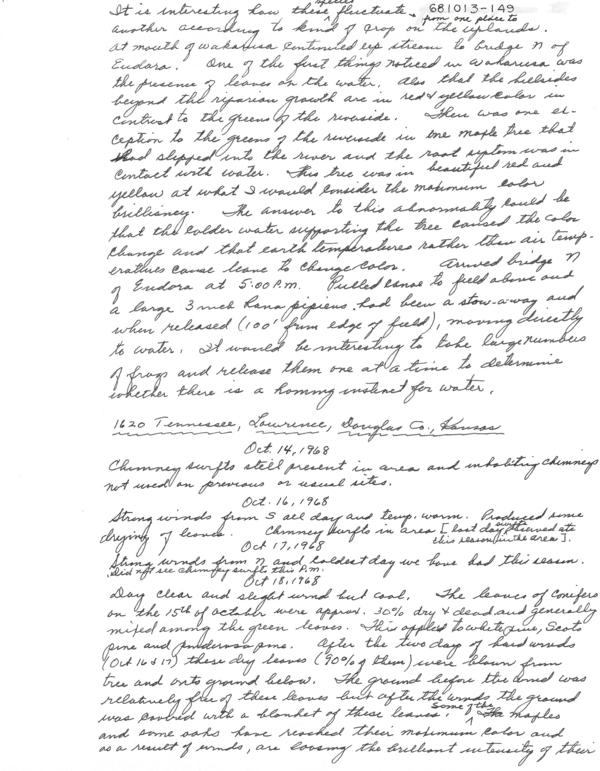 species
It is interesting how these fluctuate from one place to 681013-149
another according to kind of crop on the uplands.
at mouth of wakarusa continued up stream to bridge N of
Eudora. One of the first things noticed in wakarusa was
the presence of leaves on the water. Also that the hillsides
beyond the riparian growth are in red & yellow color in
contrast to the greens of the riverside. There was one ex-
ception to the greens of the riverside in one maple tree that
had slipped into the river and the root system was in
contact with water. This tree was in beautiful red and
yellow at what I would consider the maximum color
brilliancy. The answer to this abnormality could be
that the colder water supporting the tree caused the color
change and that earth temperatures rather than air temp-
eratures cause leave to change color. Arrived bridge N
of Eudora at 5:00 P.M. Pulled canoe to field above and
a large 3 inch Rana pipiens had been a stow-a-way and
when released (100' from edge of field), moving directly
to water. It would be interesting to take large numbers
of frogs and release them one at a time to determine
whether there is a homing instinct for water.
1620 Tennessee, Lawrence, Douglas Co., Kansas
Oct. 14, 1968
Chimney swifts still present in area and inhabiting chimneys
not used on previous or usual sites.
Oct. 16, 1968
Strong winds from S all day and temp. warm. Produced some
drying of leaves. Chimney swifts in area [last day swift observed
this season in the area].
Oct 17, 1968
Strong winds from N and coldest day we have had this season.
Did not see chimney swifts this P.M.
Oct 18, 1968
Day clear and slight wind but cool. The leaves of conifers
on the 15th of October were approx. 30% dry & dead and generally
mixed among the green leaves. This applied to white pine, Scots
pine and ponderosa pine. After the two day of hard winds
(Oct 16 & 17) these dry leaves (90% of them) were blown from
tree and onto ground below. The ground before the wind was
relatively free of these leaves but after the winds the ground
was covered with a blanket of these leaves. Some of the maples
and some oaks have reached their maximum color and
as a result of winds, are loosing the brilliant intensity of their